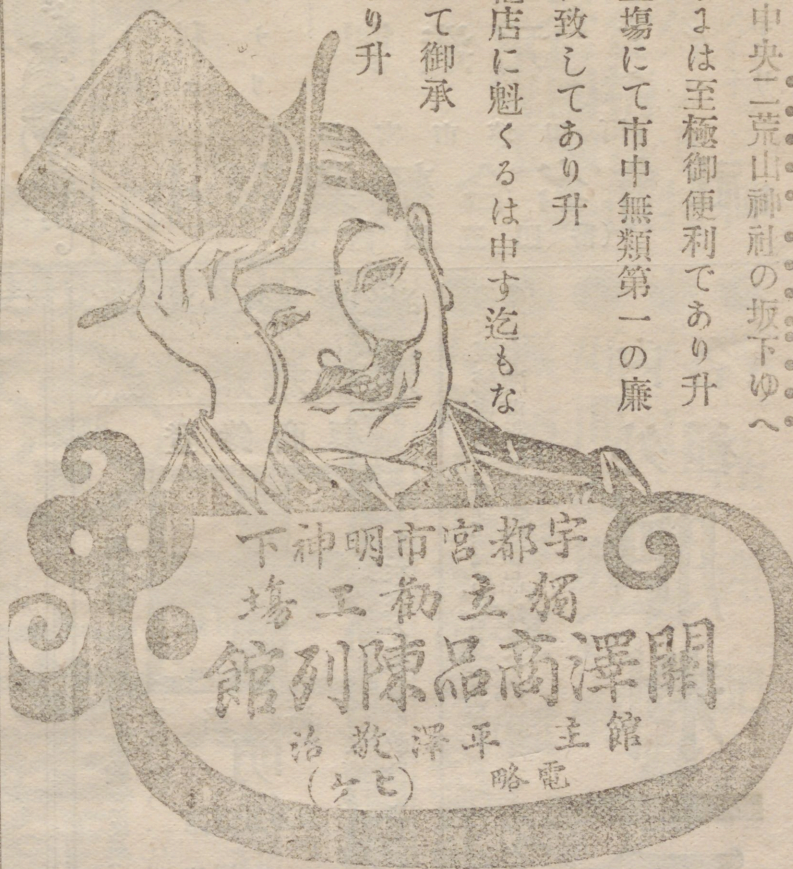 中央二荒山神社の坂下ゆへ
は至極御便利であり升
塲にて市中無類第一の廉
致してあり升
店に魁くるは申す迄もな
て御承
り升
宇都宮市明神下
獨立勸工塲
關澤商品陳列館
館主 平澤敬治
電略(ヒケ)